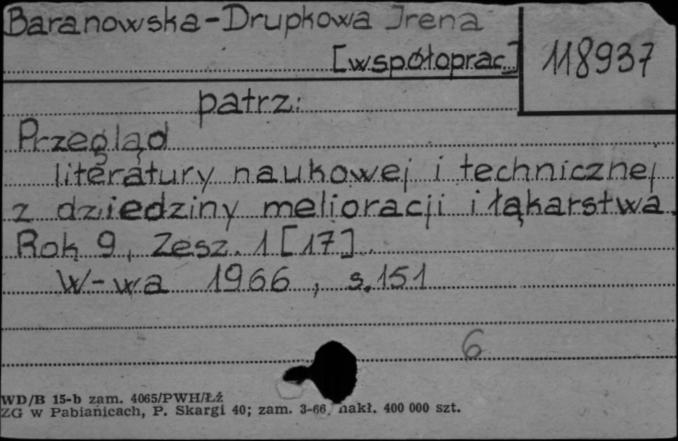 Baranowska-Drupkowa Irena
[współoprac.]
118937
patrz:
Przegląd
literatury naukowej i technicznej
z dziedziny melioracji i łąkarstwa.
Rok 9, Zesz. 1 [17].
W-wa 1966, s. 151
6
WD/B 15-b zam. 4065/PWH/Łź
ZG w Pabianicach, P. Skargi 40; zam. 3-66. nakł. 400 000 szt.